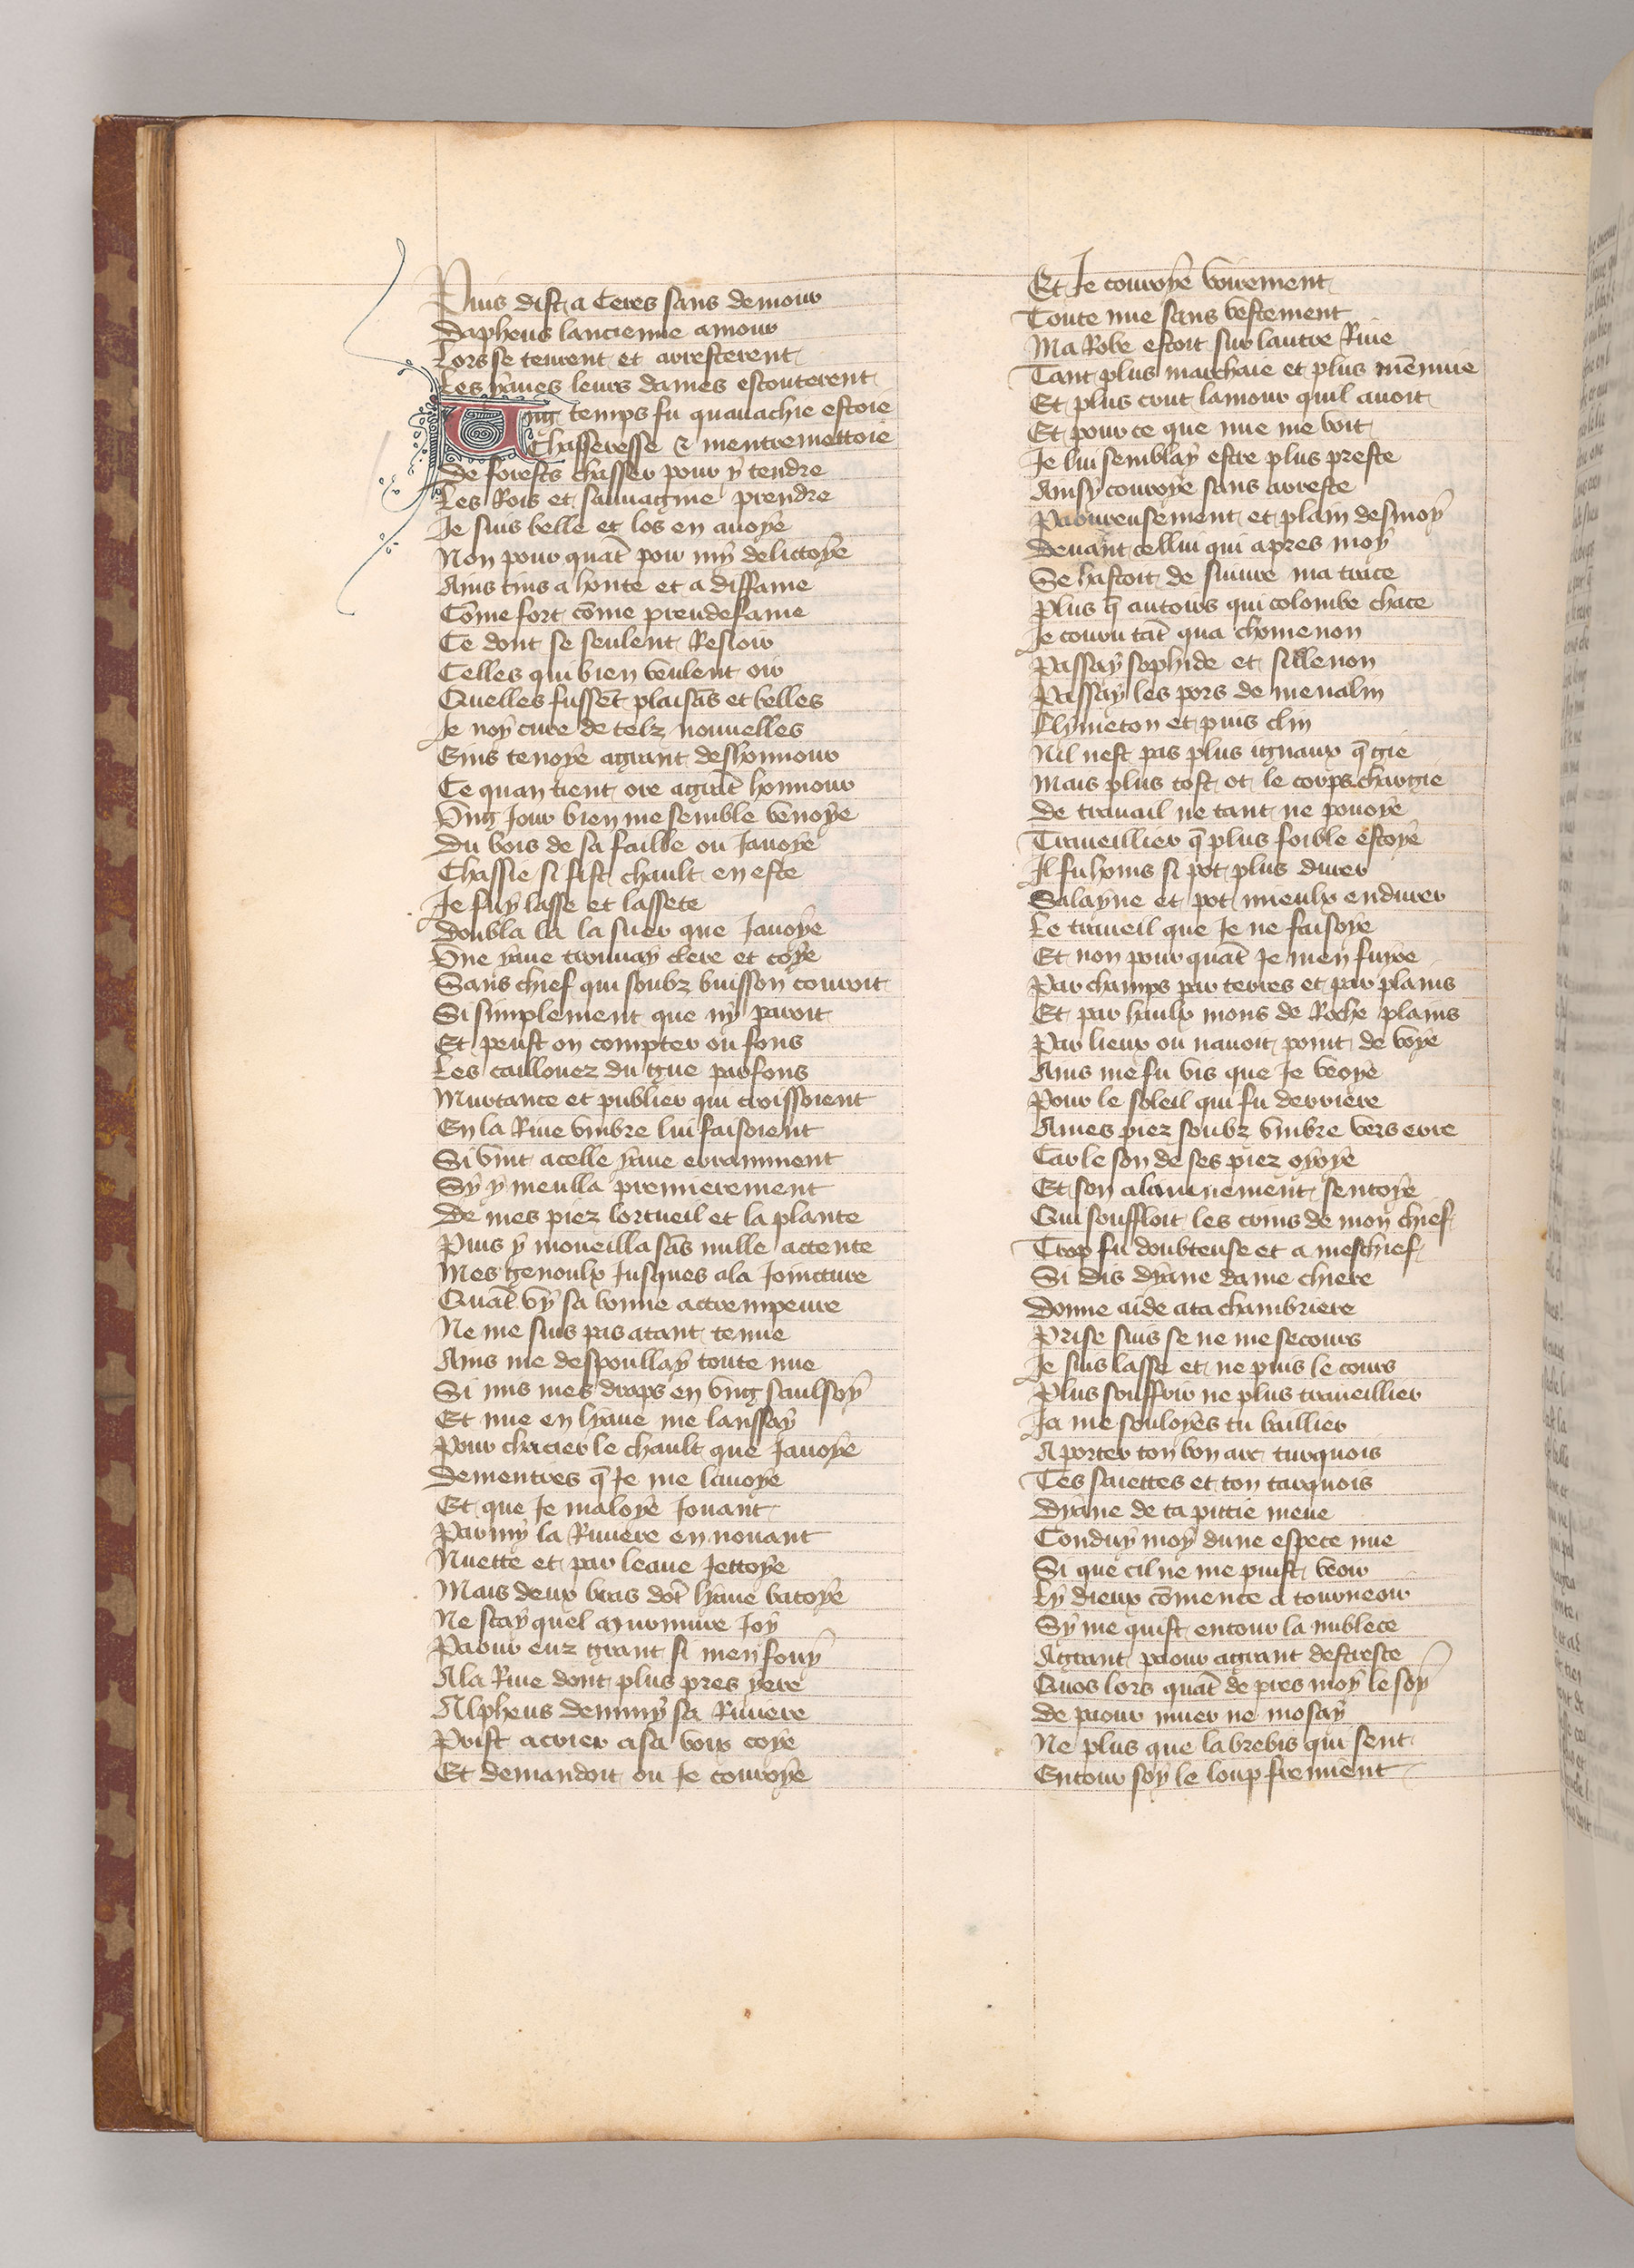 Puis dist a Ceres sans demour
Dapheus lancienne amour
Lors se teurent et arresterent
Les yaues leurs dames escouterent
Ung temps fu quauachie estoie
Chasseresse & mentremettoie
De forests chasser pour y tendre
Les Rois et sauuagine prendre
Je suis belle et los en auoye
Non pour quāt pour my delictoye
Ains tins a honte et a diffame
Cōme fort cōme preudefame
Ce dont se seulent Resioir
Celles qui bien veulent oir
Quelles fussēt plaisās et belles
Je noy cure de telz nouuelles
Eins tenoye agrant deshonnour
Ce quan tient ore agrāt honnour
Vng Jour bien me semble venoye
Du bois de sa faille ou Jauoye
Chassie si fist chault en este
Je fuy lasse et lassete
Doubla la la suer que Jauoye
Vne yaue trouuay clere et coye
Sans chief qui soubz buisson couroit
Si simplement que ny paroit
Et peust on compter ou fons
Les caillouez du gue parfons
Murtance et publier qui croissoient
En la Riue vmbre lui faisoient
Si vint acelle yaue erramment
Sy y meulla premierement
De mes piez lortueil et la plante
Puis y moueilla sās nulle attente
Mes genoulx Jusques ala Joincture
Quāt vy sa bonne actrempeure
Ne me suis pas atant tenue
Ains me despoullay toute nue
Si mis mes draps en vng saulsoy
Et nue en lyaue me lanssay
Pour chacier le chault que Jauoye
Dementres q̄ Je me lauoye
Et que Je maloye Jouant
Parmy la Riuiere en nouant
Nuette et par leaue Jettoye
Mais deux bras dōt lyaue batoye
Ne scay quel murmure Joy
Paour euz grant si men fouy
Ala Riue dont plus pres yere
Alpheus demmy sa Riuiere
Prist acrier asa voix coye
Et demandoit ou Je couroye
Et Je couroye voirement
Toute nue sans vestement
Ma Robe estoit sur lautre Riue
Tant plus marchaie et plus mēnuie
Et plus crut lamour quil auoit
Et pour ce que nue me voit
Je lui semblay estre plus preste
Ainsy couroye sans arreste
Paoureusement et plain desmoy
Deuant cellui qui apres moy
Se hastoit de suiure ma trace
Plus q̄ autours qui colombe chace
Je couru tāt qua chomenon
Passay sophide et sillenon
Passay les pors de menalin
Chymeton et puis clin
Nil nest pas plus ignaux q̄ gie
Mais plus tost ot le corps chargie
De trauail ne tant ne pouoye
Traueillier q̄ plus foible estoye
Il fu homs si pot plus durer
Salayne et pot mieulx endurer
Le traueil que Je ne faisoye
Et non pour quāt Je men fuyoe
Par champs par terres et par plains
Et par haulx mons de Roche plains
Par lieux ou nauoit point de voye
Ains me fu vis que Je veoye
Pour le soleil qui fu derriere
Ames piez soubz vmbre vers erre
Car le son de ses piez oyoye
Et son alainnement sentoye
Qui souffloit les crins de mon chief
Trop fu doubteuse et a meschief
Si dis dyane dame chiere
Donne aide ata chambriere
Prise suis se ne me secours
Je suis lasse et ne puis le cours
Plus souffrir ne plus traueillier
Ja me souloyes tu baillier
A porter ton bon arc turquois
Tes saiettes et ton tarquois
Dyane de ta pittie meue
Conduy moy dune espece nue
Si que cil ne me puist veoir
Ly dieux cōmence a tourneoir
Sy me quist entour la nublece
Agrant paour agrant destresce
Quos lors quāt de pres moy le soy
De paour muer ne mosay
Ne plus que la brebis qui sent
Entour soy le loup fremient